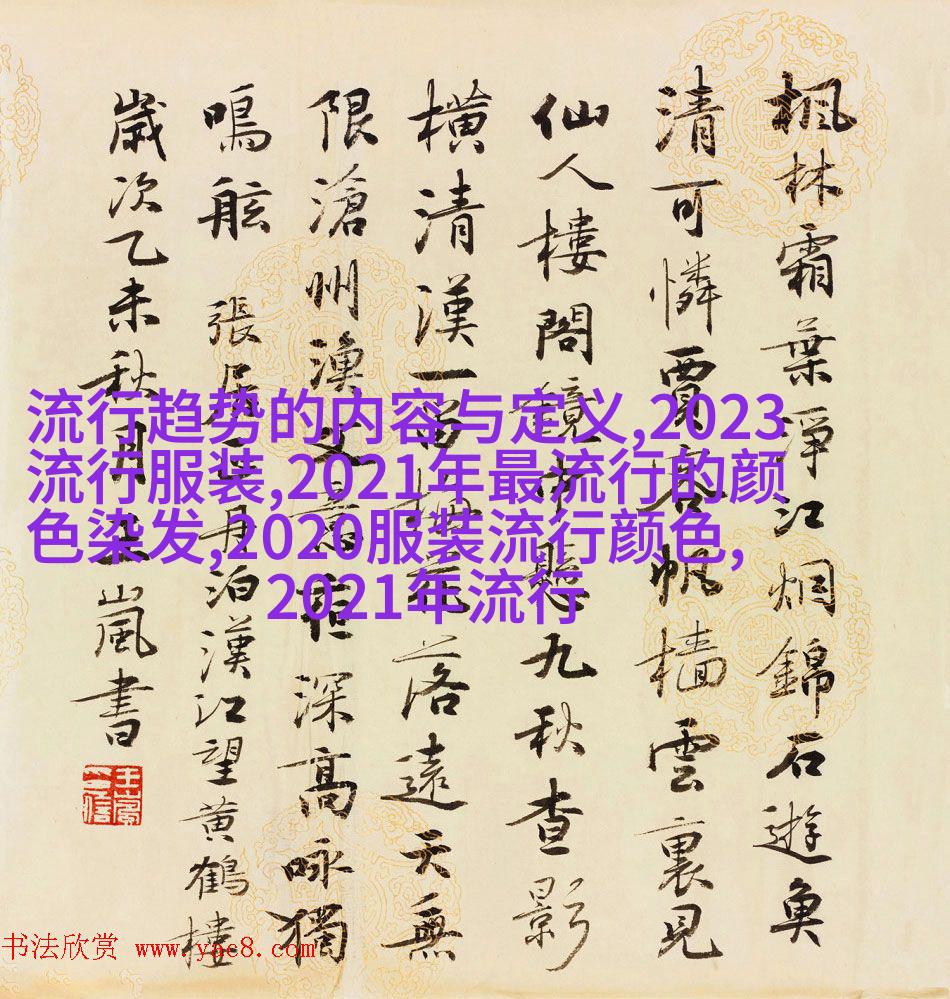 流行趋势的内容与定义,2023
流行服装,2021年最流行的颜
色染发,2020服装流行颜色,
2021年流行
楓林霜葉淨江烟錦石遊魚
清可憐賈客帆檣雲裏見
仙人樓閣鏡中懸九秋查影
橫清漢一笛梅花落遠天無
限滄州漁父意夜深高咏獨
鳴舷 張居正舟泊漢江望黃鶴樓
歲次乙未秋月嵐書
书法欣赏 www.yac8.com